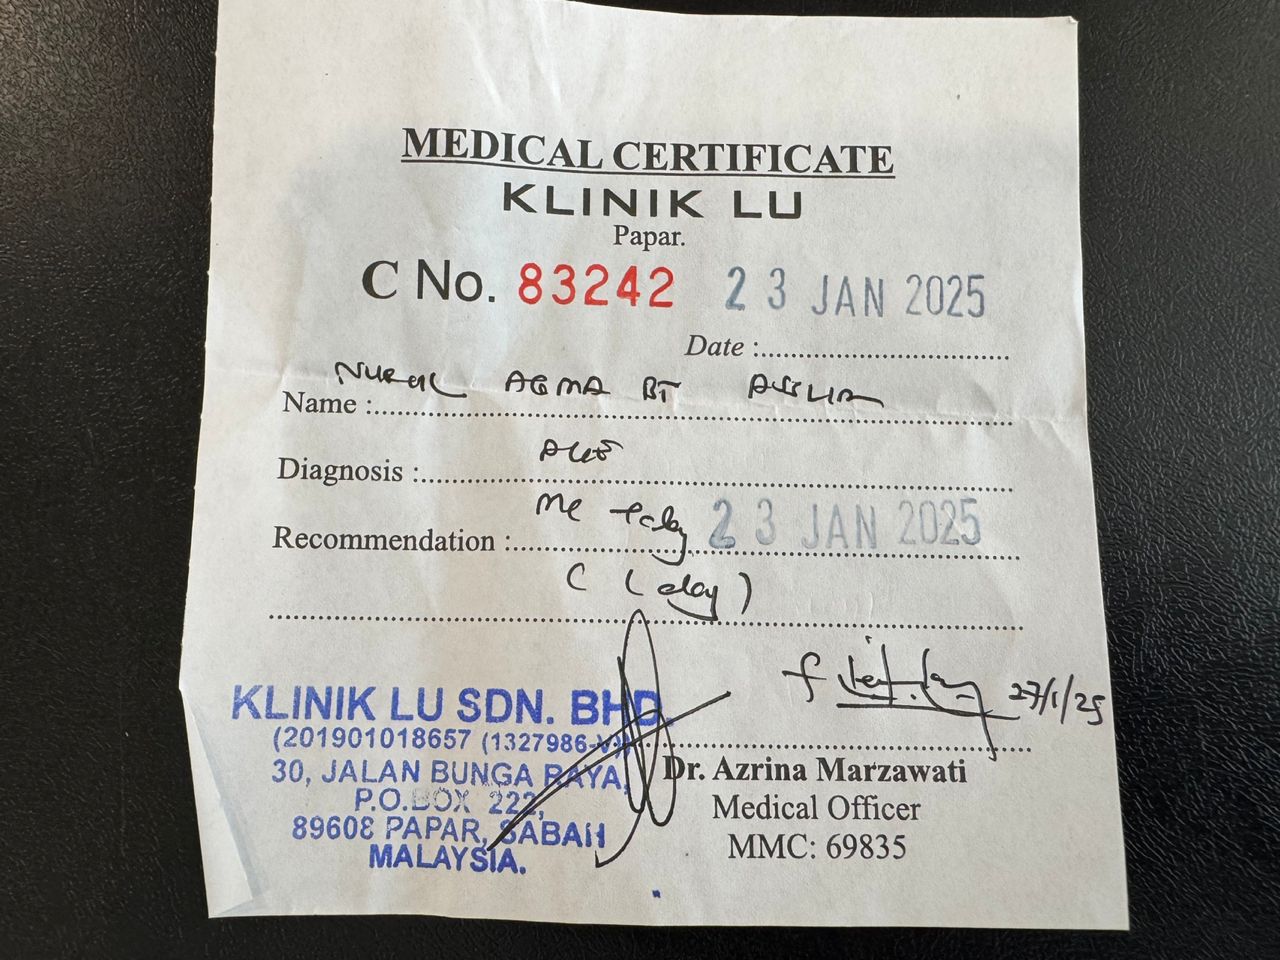 MEDICAL CERTIFICATE
KLINIK LU
Papar.
C No. 83242 23 JAN 2025
Date :
Name : NURUL AGMA BT
Diagnosis :
Recommendation : MC today 23 JAN 2025
(day)
KLINIK LU SDN. BHD.
(201901018657 (1327986-V))
30, JALAN BUNGA RAYA,
P.O.BOX 222,
89608 PAPAR, SABAH
MALAYSIA.
27/1/25
Dr. Azrina Marzawati
Medical Officer
MMC: 69835